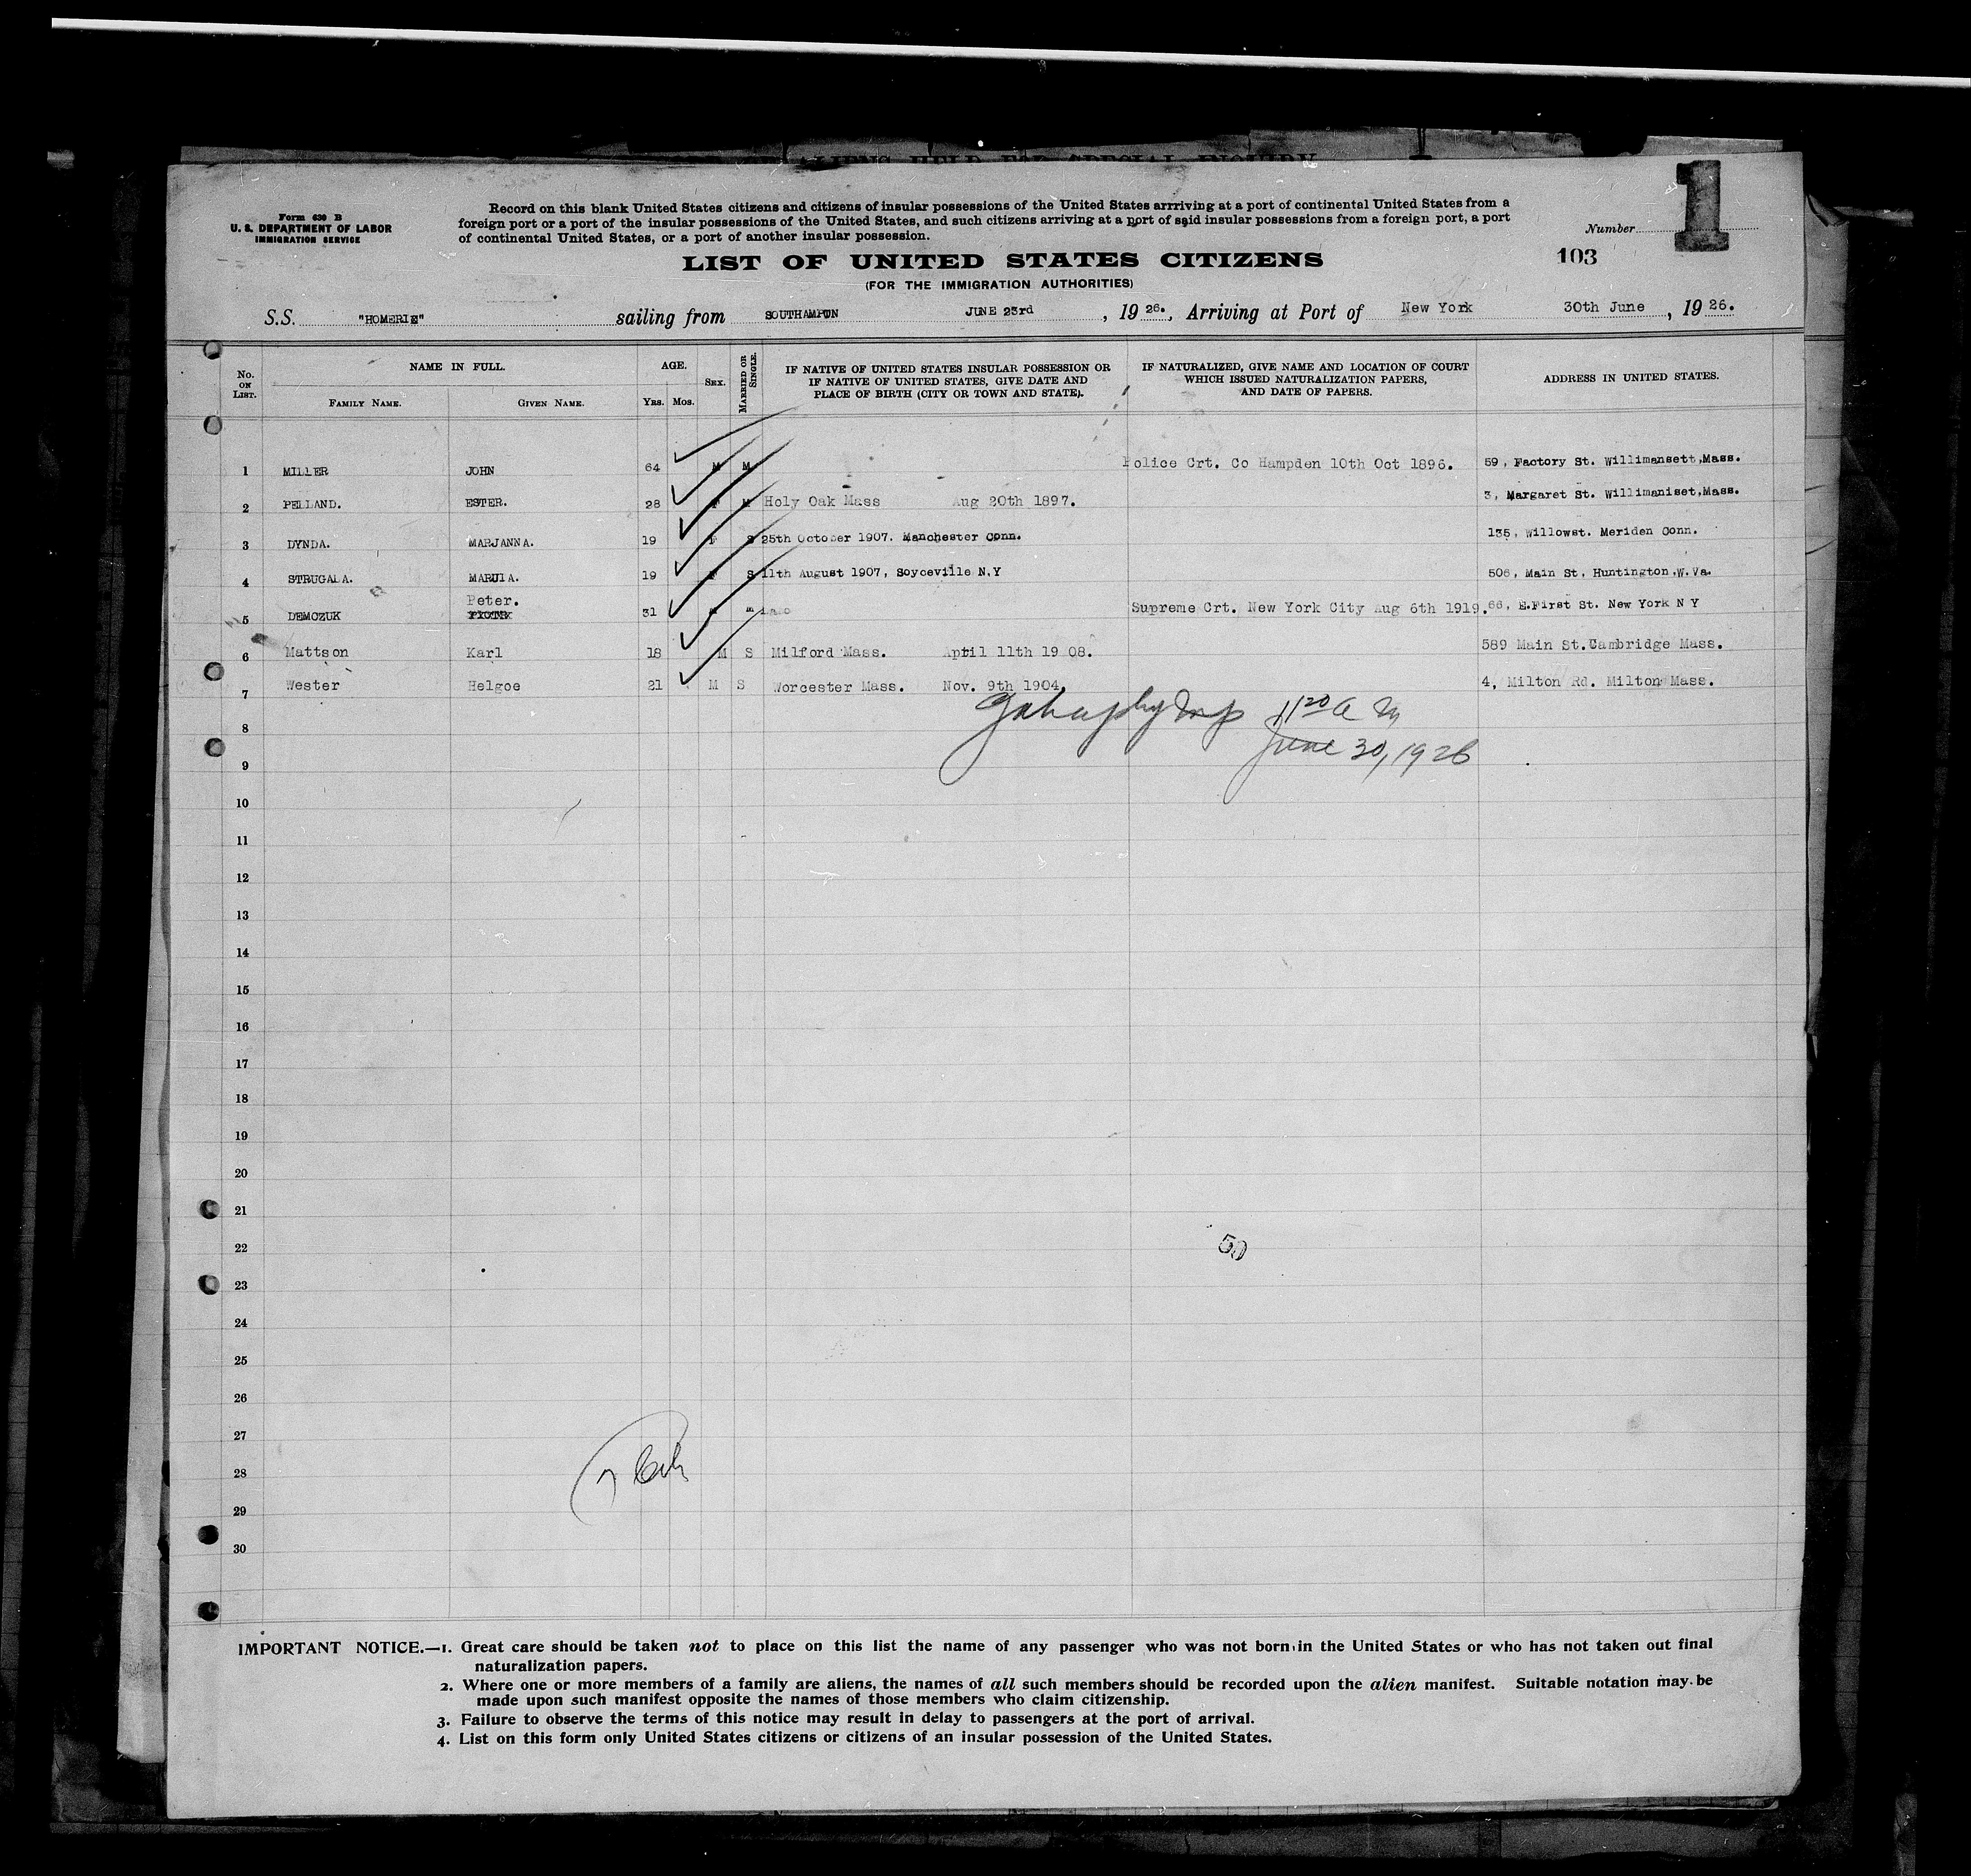 Form 630 B
U. S. DEPARTMENT OF LABOR
IMMIGRATION SERVICE
Record on this blank United States citizens and citizens of insular possessions of the United States arrriving at a port of continental United States from a
foreign port or a port of the insular possessions of the United States, and such citizens arriving at a port of said insular possessions from a foreign port, a port
of continental United States, or a port of another insular possession.
Number 1
103
LIST OF UNITED STATES CITIZENS
(FOR THE IMMIGRATION AUTHORITIES)
S.S. "HOMERIC" sailing from SOUTHAMPTON JUNE 23rd, 1926., Arriving at Port of New York 30th June, 1926.
No. ON LIST. NAME IN FULL. AGE. SEX. MARRIED OR SINGLE. IF NATIVE OF UNITED STATES INSULAR POSSESSION OR IF NATIVE OF UNITED STATES, GIVE DATE AND PLACE OF BIRTH (CITY OR TOWN AND STATE). IF NATURALIZED, GIVE NAME AND LOCATION OF COURT WHICH ISSUED NATURALIZATION PAPERS, AND DATE OF PAPERS. ADDRESS IN UNITED STATES.
FAMILY NAME. GIVEN NAME. YRS. MOS.
1 MILLER JOHN 64 M M Police Crt. Co Hampden 10th Oct 1896. 59, Factory St. Willimansett,Mass.
2 PELLAND. ESTER. 28 F M Holy Oak Mass Aug 20th 1897. 3, Margaret St. Willimaniset,Mass.
3 DYNDA. MARJANNA. 19 F S 25th October 1907. Manchester Conn. 135, Willowst. Meriden Conn.
4 STRUGALA. MARJIA. 19 F S 11th August 1907, Soyceville N.Y 506, Main St, Huntington.W.Va.
Peter.
5 DEMCZUK PIOTR 31 m m Supreme Crt. New York City Aug 6th 1919. 66, E.First St. New York N Y
6 Mattson Karl 18 M S Milford Mass. April 11th 1908. 589 Main St.Cambridge Mass.
7 Wester Helgoe 21 M S Worcester Mass. Nov. 9th 1904. 4, Milton Rd. Milton Mass.
8
11 20 a m
June 30, 1926
9
10
11
12
13
14
15
16
17
18
19
20
21
22
50
23
24
25
26
27
28
29
30
IMPORTANT NOTICE.—1. Great care should be taken not to place on this list the name of any passenger who was not born in the United States or who has not taken out final
naturalization papers.
2. Where one or more members of a family are aliens, the names of all such members should be recorded upon the alien manifest. Suitable notation may be
made upon such manifest opposite the names of those members who claim citizenship.
3. Failure to observe the terms of this notice may result in delay to passengers at the port of arrival.
4. List on this form only United States citizens or citizens of an insular possession of the United States.